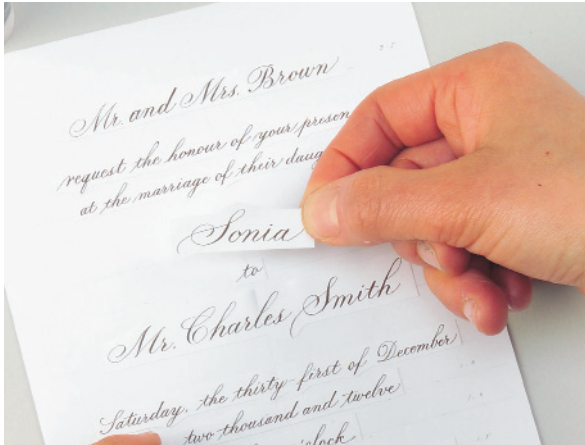 Mr. and Mrs. Brown
request the honour of your presen
at the marriage of their daug
Sonia
to
Mr. Charles Smith
Saturday, the thirty-first of December
two thousand and twelve
o'clock